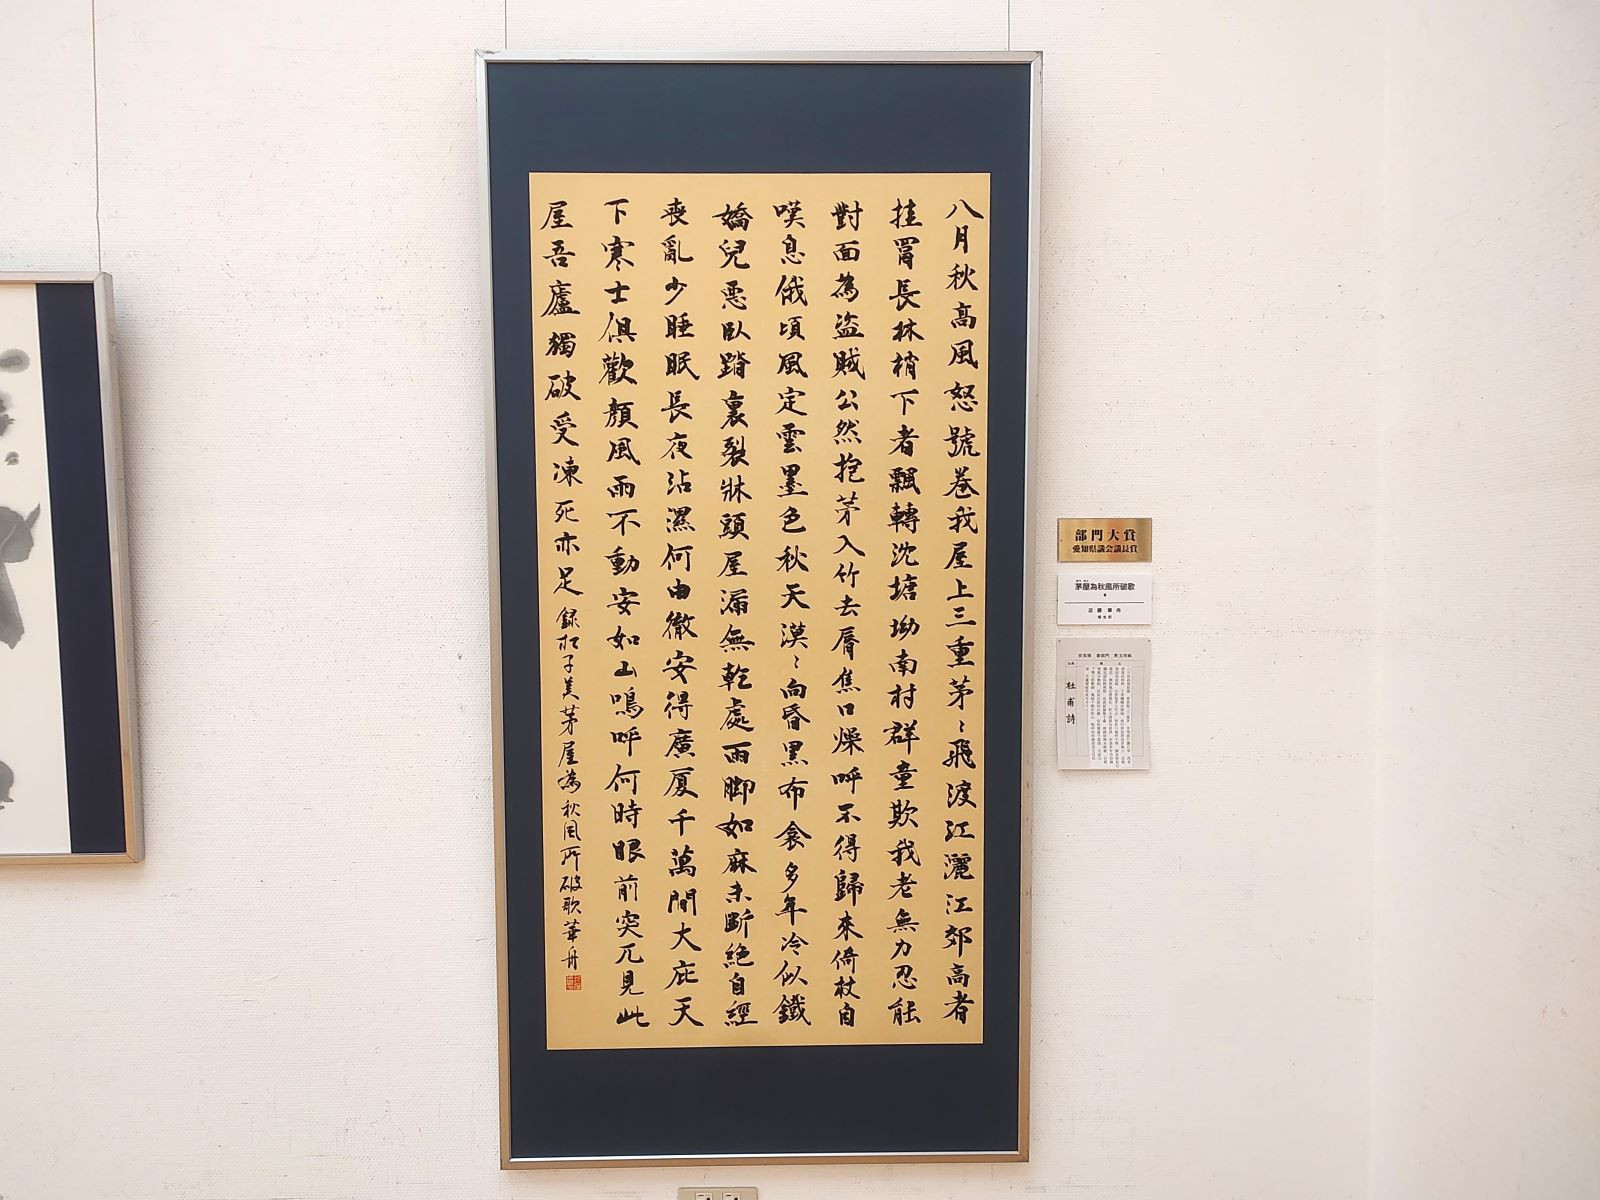 八月秋高風怒號卷我屋上三重茅〻飛渡江灑江郊高者
挂罥長林梢下者飄轉沈塘坳南村群童欺我老無力忍能
對面為盜賊公然抱茅入竹去脣焦口燥呼不得歸來倚杖自
嘆息俄頃風定雲墨色秋天漠〻向昏黑布衾多年冷似鐵
嬌兒惡臥踏裏裂牀頭屋漏無乾處雨脚如麻未斷絕自經
喪亂少睡眠長夜沾濕何由徹安得廣厦千萬間大庇天
下寒士俱歡顏風雨不動安如山嗚呼何時眼前突兀見此
屋吾廬獨破受凍死亦足 録杜子美茅屋為秋風所破歌 華舟
部門大賞
愛知県議会議長賞
茅屋為秋風所破歌
近藤華舟
杜甫詩